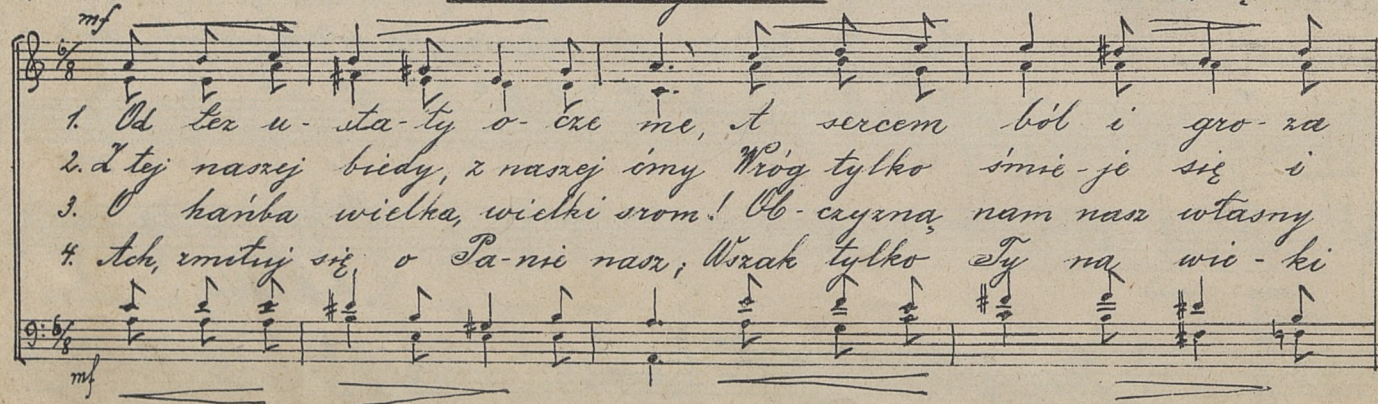 mf
6/8
1. Od łez u- sta-ły o- cze me, A sercem ból i gro- za
2. Z tej naszej biedy, z naszej ćmy Wróg tylko śmie-je się i
3. O hańba wielka, wielki srom! Ob- czyzną nam nasz własny
4. Ach, zmiłuj się, o Pa-nie nasz; Wszak tylko Ty na wie- ki
6/8
mf